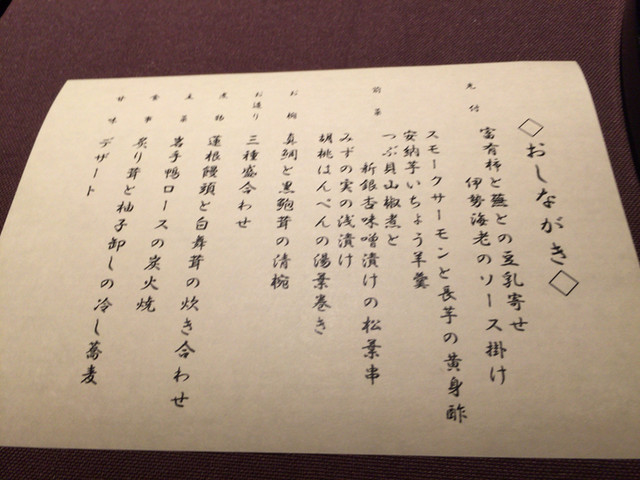 ◇おしながき◇
先付
富有柿と蕪との豆乳寄せ
伊勢海老のソース掛け
前菜
スモークサーモンと長芋の黄身酢
安納芋いちょう羊羹
つぶ貝山椒煮と
新銀杏味噌漬けの松葉串
みずの実の浅漬け
胡桃はんぺんの湯葉巻き
お椀
真鯛と黒鮑茸の清椀
お造り
三種盛合わせ
煮物
蓮根饅頭と白舞茸の炊き合わせ
主菜
岩手鴨ロースの炭火焼
食事
炙り茸と柚子卸しの冷し蕎麦
甘味
デザート